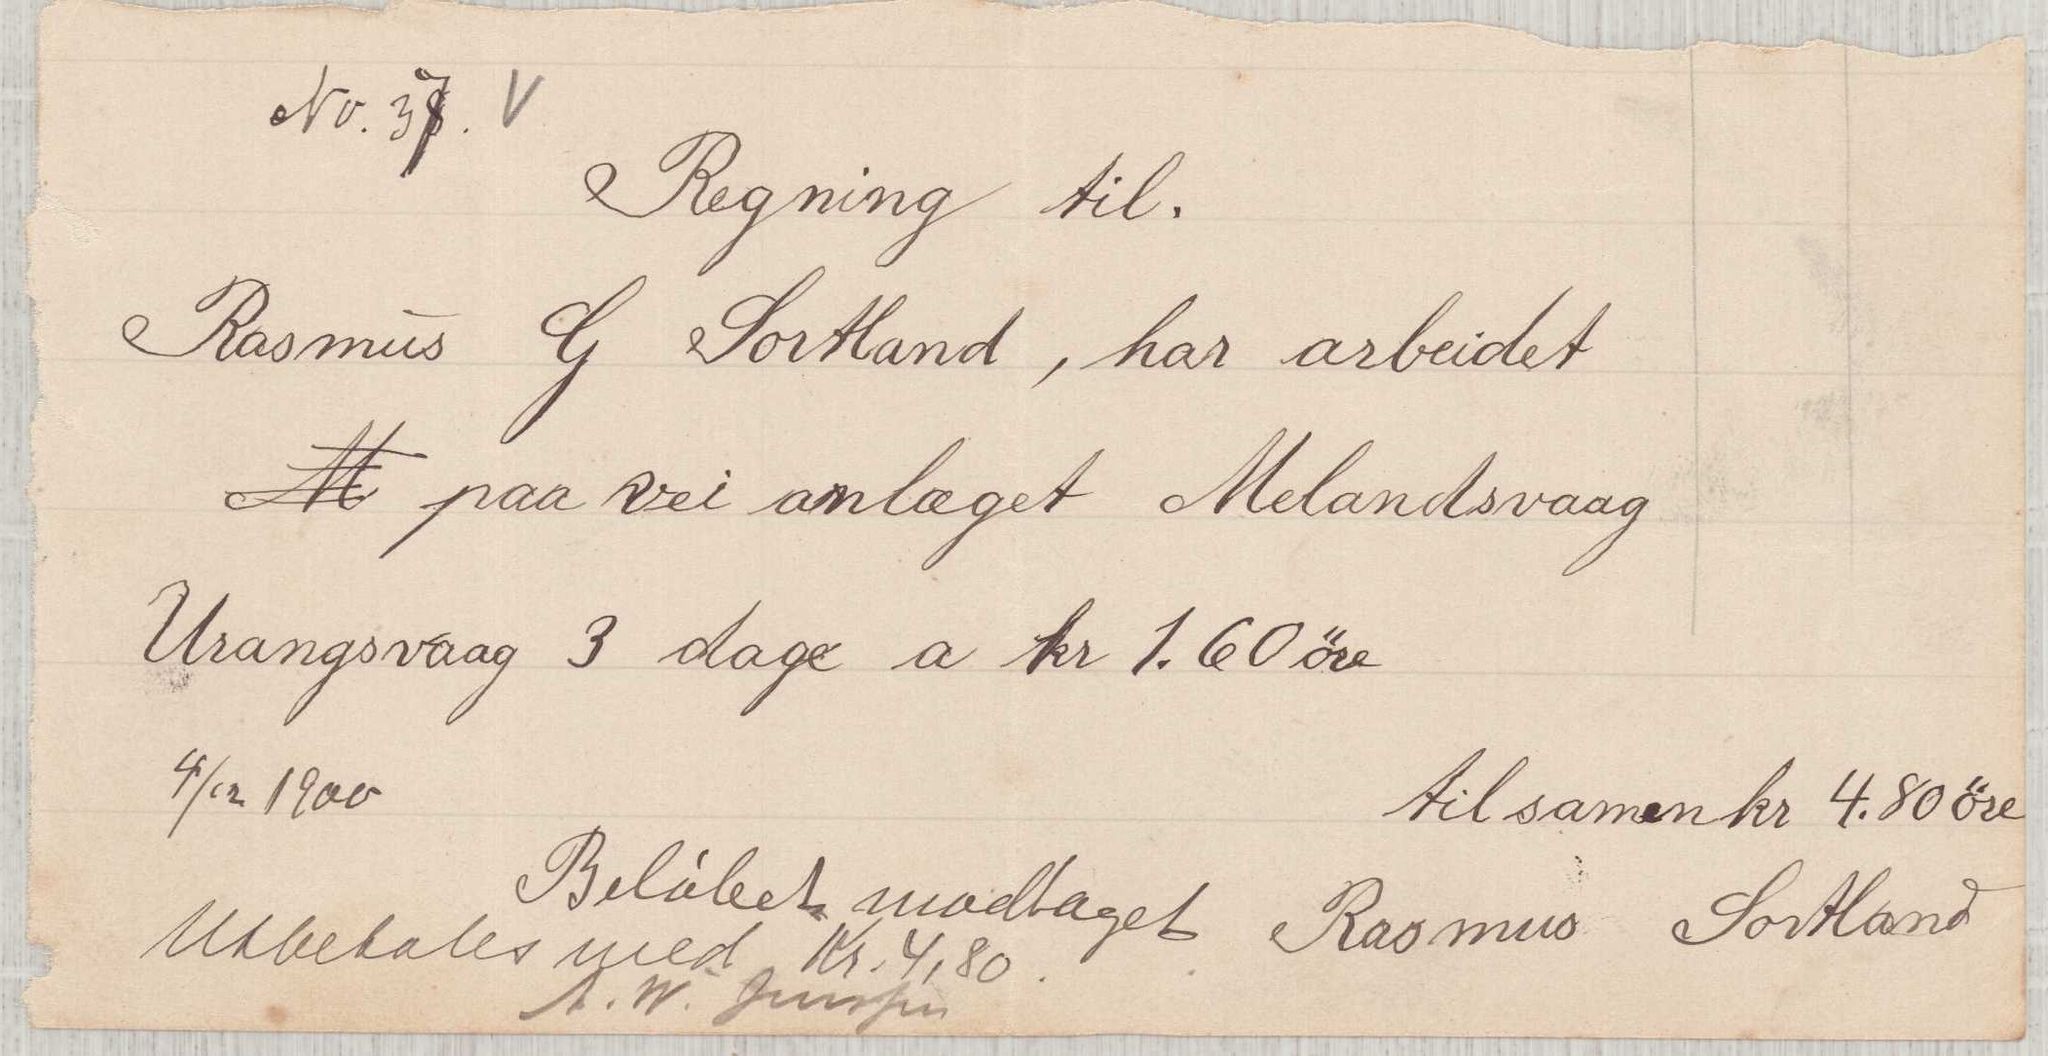 No. 37. V
Regning til.
Rasmus G Sortland, har arbeidet
paa vei anlæget Melandsvaag
Urangsvaag 3 dage a kr 1.60 öre
4/12 1900
tilsamen kr 4.80 öre
Belöbet modtaget Rasmus Sortland
Utbetales med Kr. 4,80.
A. W.